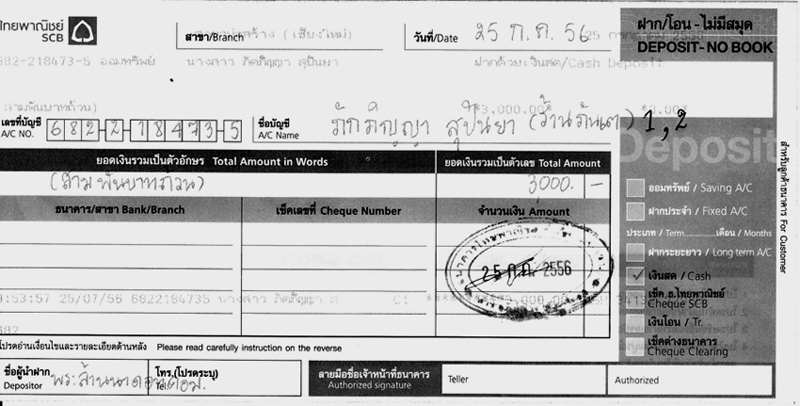 ไทยพาณิชย์
SCB
สาขา/Branch
(เชียงใหม่)
วันที่/Date 25 ก.ค. 56
ฝาก/โอน - ไม่มีสมุด
DEPOSIT - NO BOOK
692-218473-5 ออมทรัพย์ นางสาว ภัคภิญญา สุปินยา ฝากด้วยเงินสด/Cash Deposit
สามพันบาทถ้วน) *3,000.00* *0.00*
เลขที่บัญชี
A/C NO. 682-2-18473-5
ชื่อบัญชี
A/C Name ภัคภิญญา สุปินยา 1,2
Deposit
ยอดเงินรวมเป็นตัวอักษร Total Amount in Words ยอดเงินรวมเป็นตัวเลข Total Amount
(สามพันบาทถ้วน) 3000. -
ธนาคาร/สาขา Bank/Branch เช็คเลขที่ Cheque Number จำนวนเงิน Amount
ออมทรัพย์ / Saving A/C
ฝากประจำ / Fixed A/C
ประเภท / Term เดือน / Months
ฝากระยะยาว / Long term A/C
✓ เงินสด / Cash
เช็ค.ธ.ไทยพาณิชย์
Cheque SCB.
เงินโอน / Tr.
เช็คต่างธนาคาร
Cheque Clearing
สำหรับลูกค้าธนาคาร For Customer
25 ก.ค. 2556
9:53:57 25/07/56 6822184735 นางสาว ภัคภิญญา ส C1
โปรดอ่านเงื่อนไขและรายละเอียดด้านหลัง Please read carefully instruction on the reverse
ชื่อผู้นำฝาก
Depositor
โทร.(โปรดระบุ)
Tel.
ลายมือชื่อเจ้าหน้าที่ธนาคาร
Authorized signature
Teller
Authorized